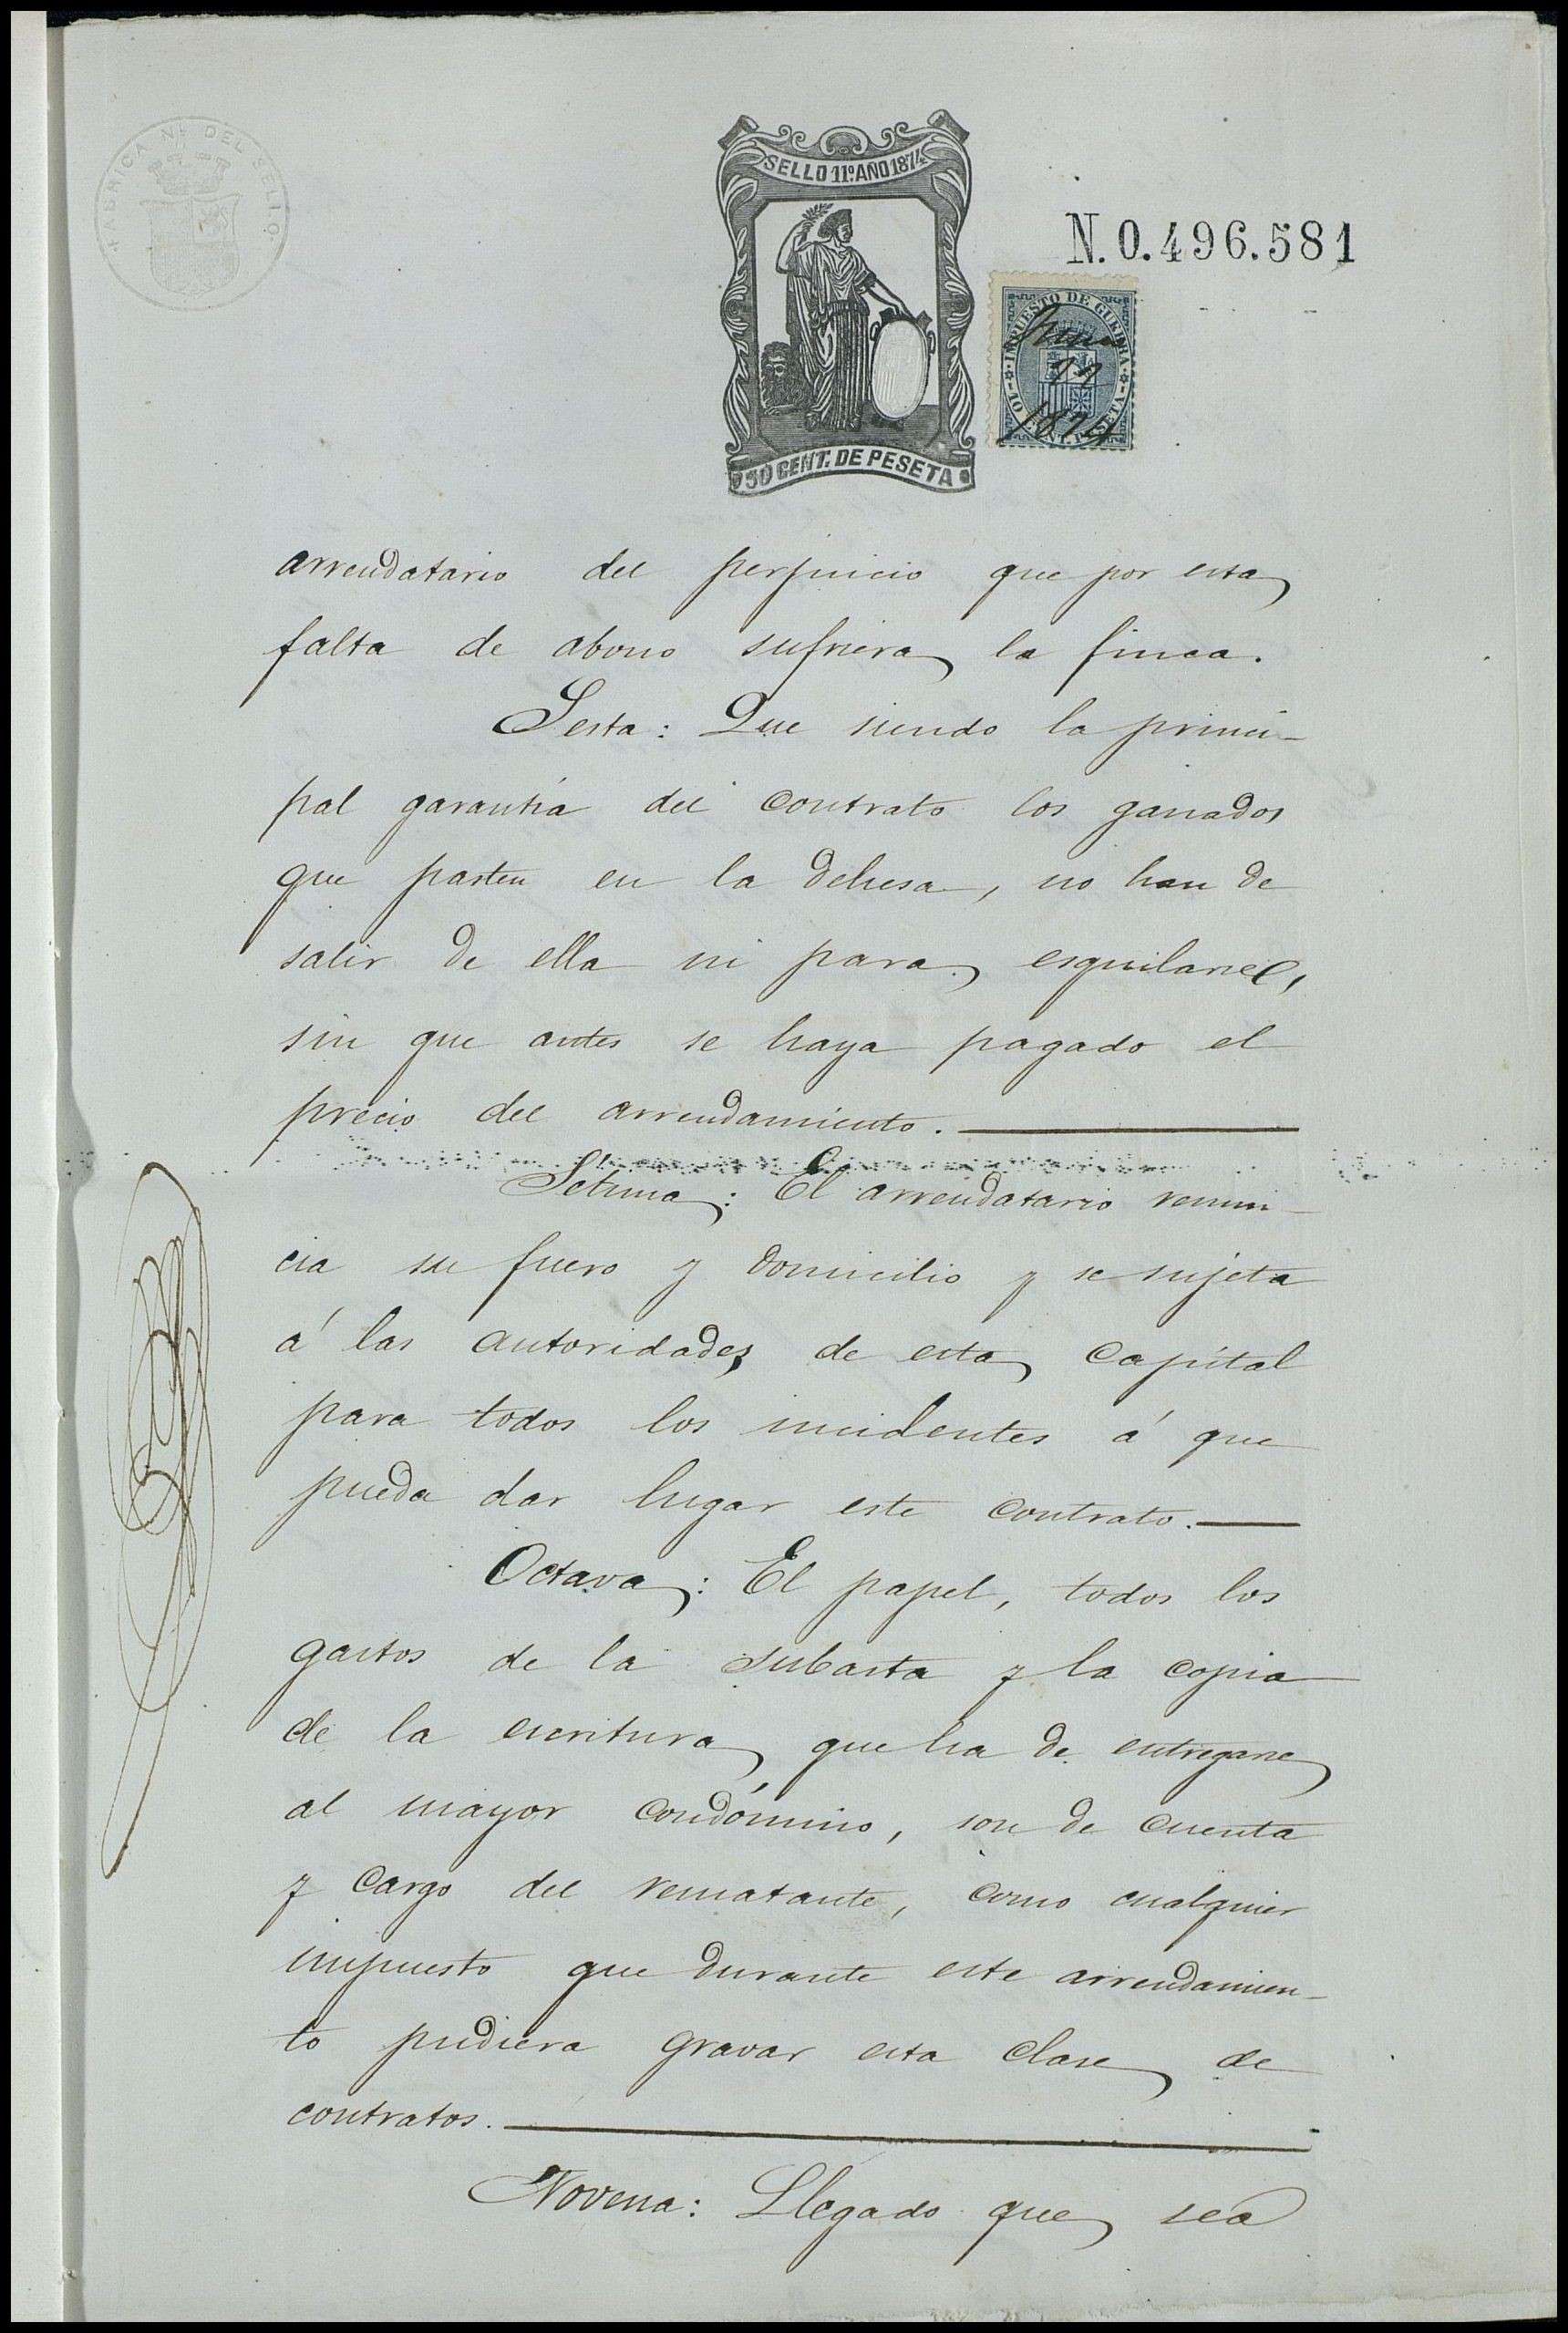 SELLO 11º AÑO 1874
N.0.496.581
IMPUESTO DE GUERRA
10 CENT. PESETA
1874
50 CENT. DE PESETA
arrendatario del perjuicio que por esta
falta de abono sufriera la finca.
Sesta: Que siendo la princi-
pal garantía del contrato los ganados
que pasten en la dehesa, no han de
salir de ella ni para esquilarse,
sin que antes se haya pagado el
precio del arrendamiento.
Setima: El arrendatario renun-
cia su fuero y domicilio y se sujeta
á las autoridades de esta capital
para todos los incidentes á que
pueda dar lugar este contrato.
Octava: El papel, todos los
gastos de la subasta y la copia
de la escritura que ha de entregarse
al mayor condómino, son de cuenta
y cargo del rematante, como cualquier
impuesto que durante este arrendamien-
to pudiera gravar esta clase de
contratos.
Novena: Llegado que sea